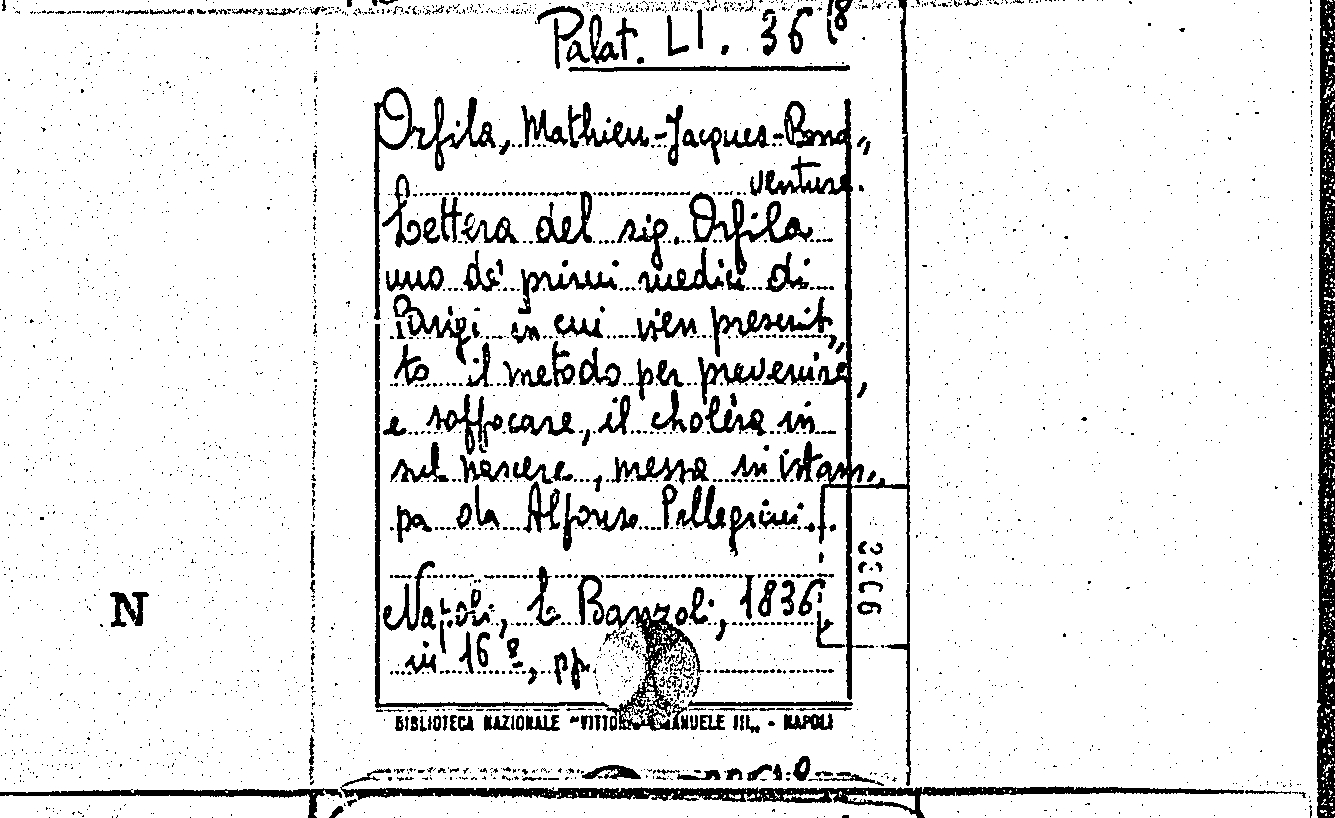 Palat. LI. 36 (8
Orfila, Mathieu-Jacques-Bona„
venture.
Lettera del sig. Orfila
uno de' primi medici di
Parigi in cui vien prescrit„
to il metodo per prevenire,
e soffocare, il cholèra in
sul nascere, messa in istam„
pa da Alfonso Pellegrini.
Napoli, L. Banzoli, 1836
in 16º, pp.
BIBLIOTECA NAZIONALE "VITTORIO EMANUELE III„ - NAPOLI
N